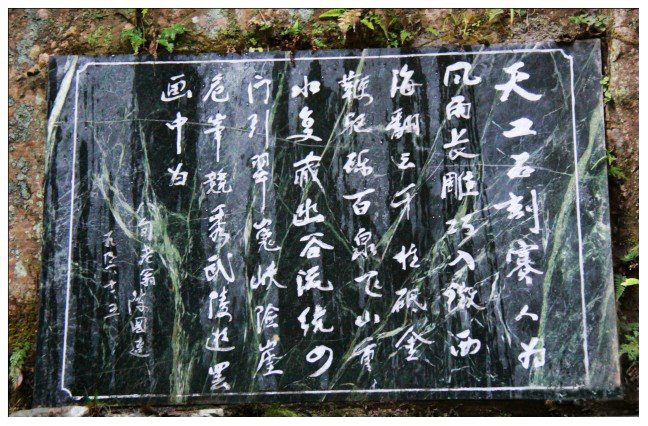 天工石刻赛人为
风雨长雕巧入微西
海翻三千柱砥金
鞭 百泉飞山重
水复藏幽谷流绕四
门引翠嵬峡险崖
危峰競秀武陵游罢
画中归
老翁 陈国